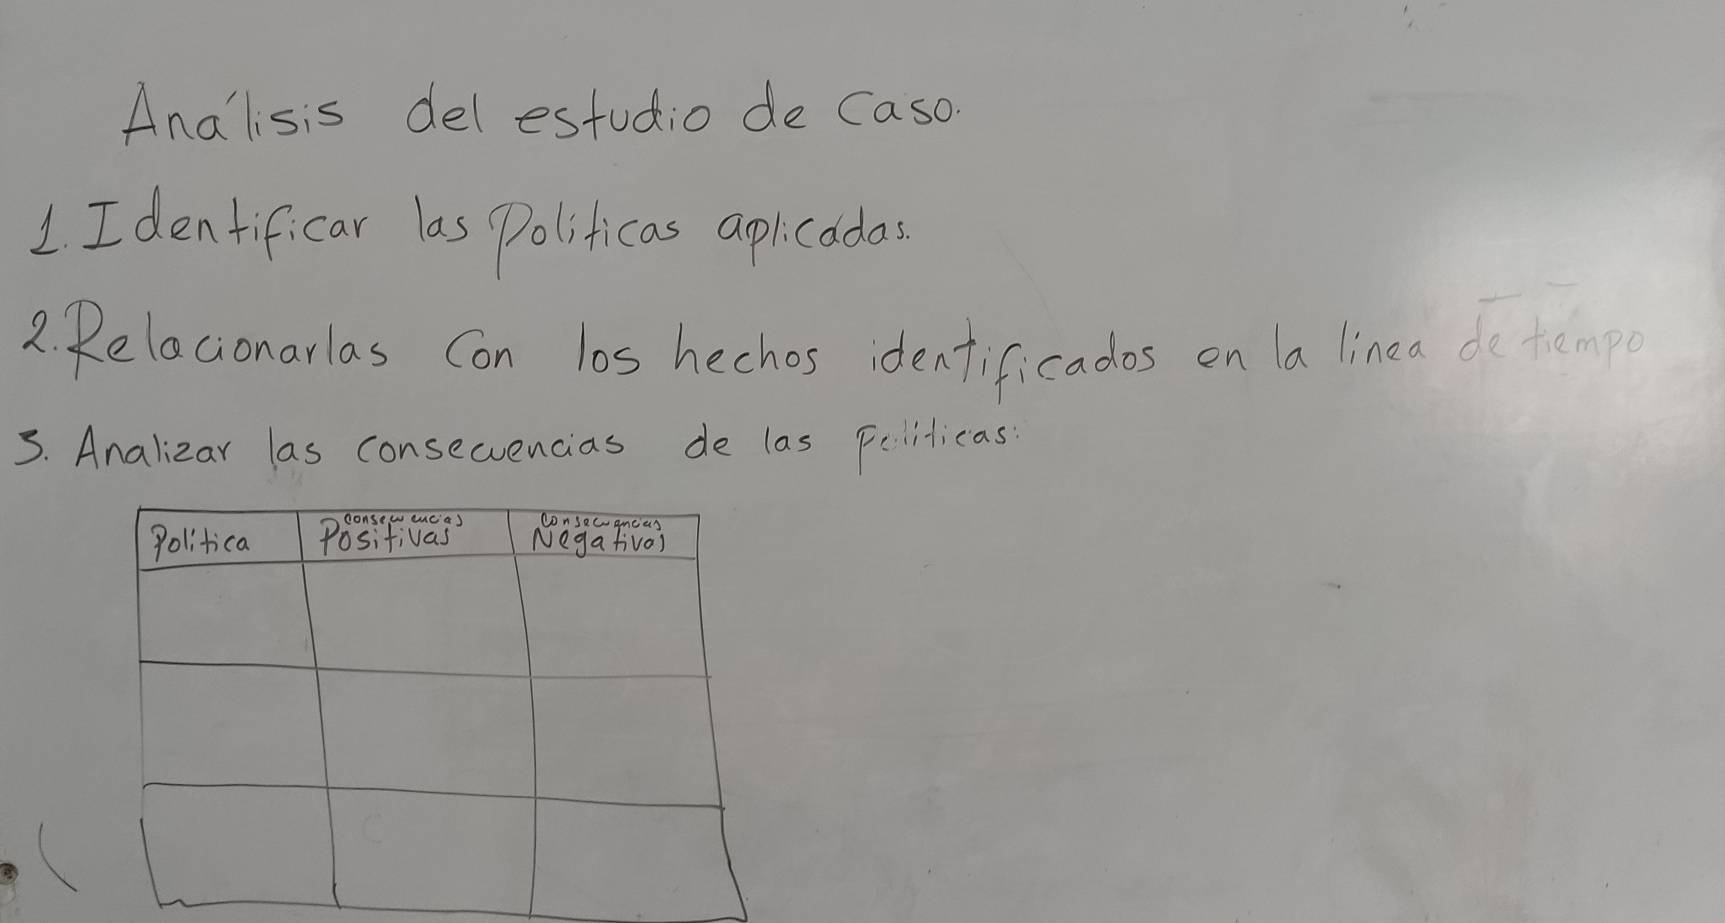 Análisis del estudio de caso.
1. Identificar las Politicas aplicadas.
2. Relacionarlas con los hechos identificados en la linea de tiempo
3. Analizar las consecuencias de las politicas:
Política
consecuencias
Positivas
consecuencias
Negativas